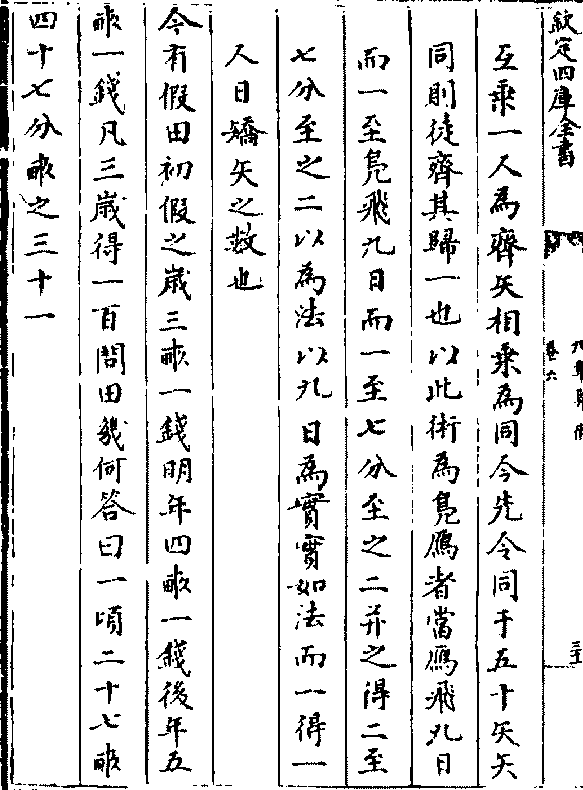 欽定四庫全書
卷六
互乘一人為齊矢相乘為同今先令同于五十矢矢
同則徒齊其歸一也以此術為鳧鴈者當鴈飛九日
而一至鳧飛九日而一至七分至之二并之得二至
七分至之二以為法以九日為實實如法而一得一
人日矯矢之數也
今有假田初假之嵗三畝一錢明年四畝一錢後年五
畝一錢凡三嵗得一百問田幾何答曰一頃二十七畝
四十七分畝之三十一